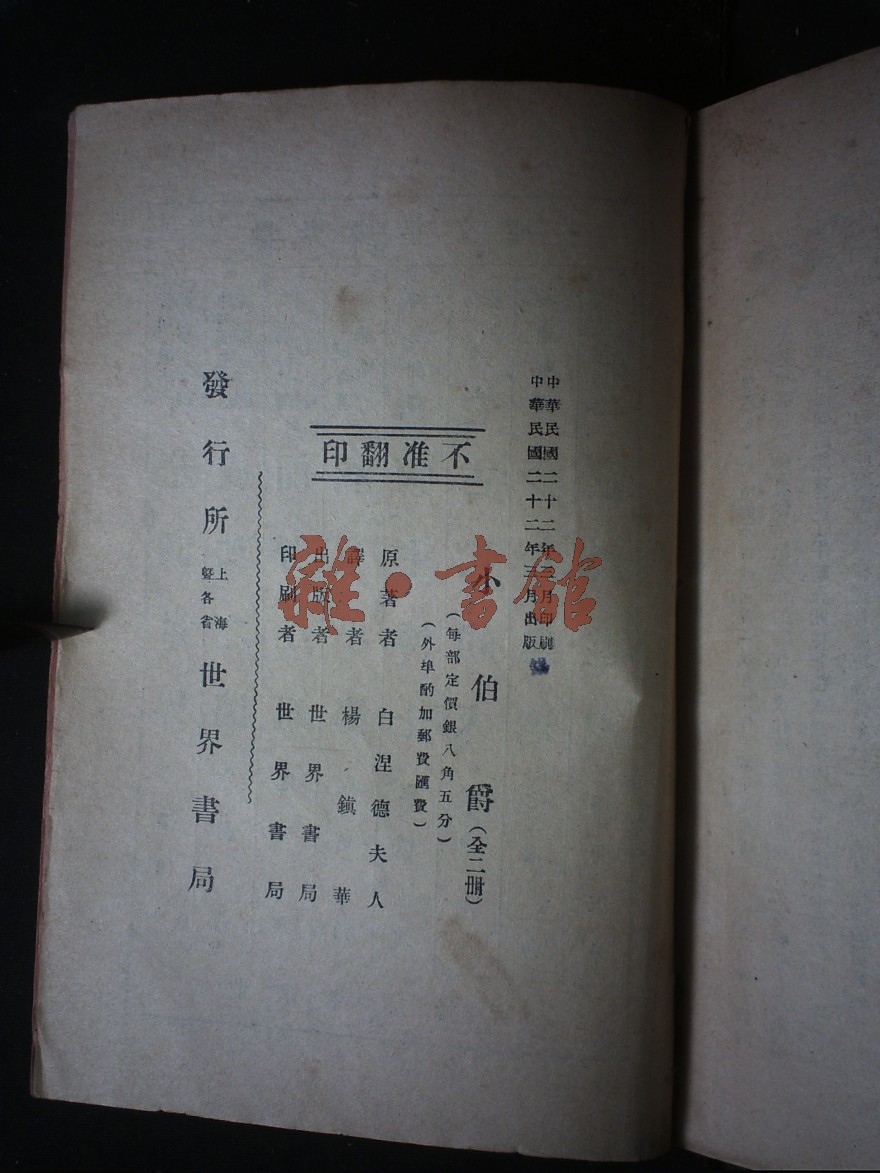 中華民國二十二年 月印刷
中華民國二十二年三月出版
小伯爵(全二冊)
(每部定價銀八角五分)
(外埠酌加郵費匯費)
不准翻印
原著者 白涅德夫人
譯者 楊鎮華
出版者 世界書局
印刷者 世界書局
發行所 上海暨各省 世界書局
雜·書館